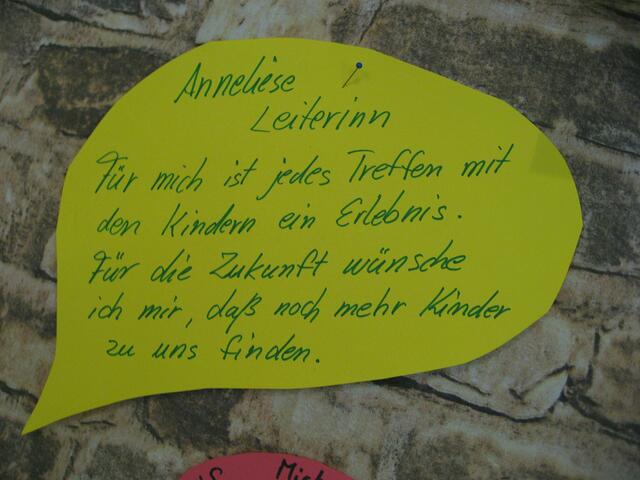 Anneliese
Leiterinn
Für mich ist jedes Treffen mit
den Kindern ein Erlebnis.
Für die Zukunft wünsche
ich mir, daß noch mehr Kinder
zu uns finden.